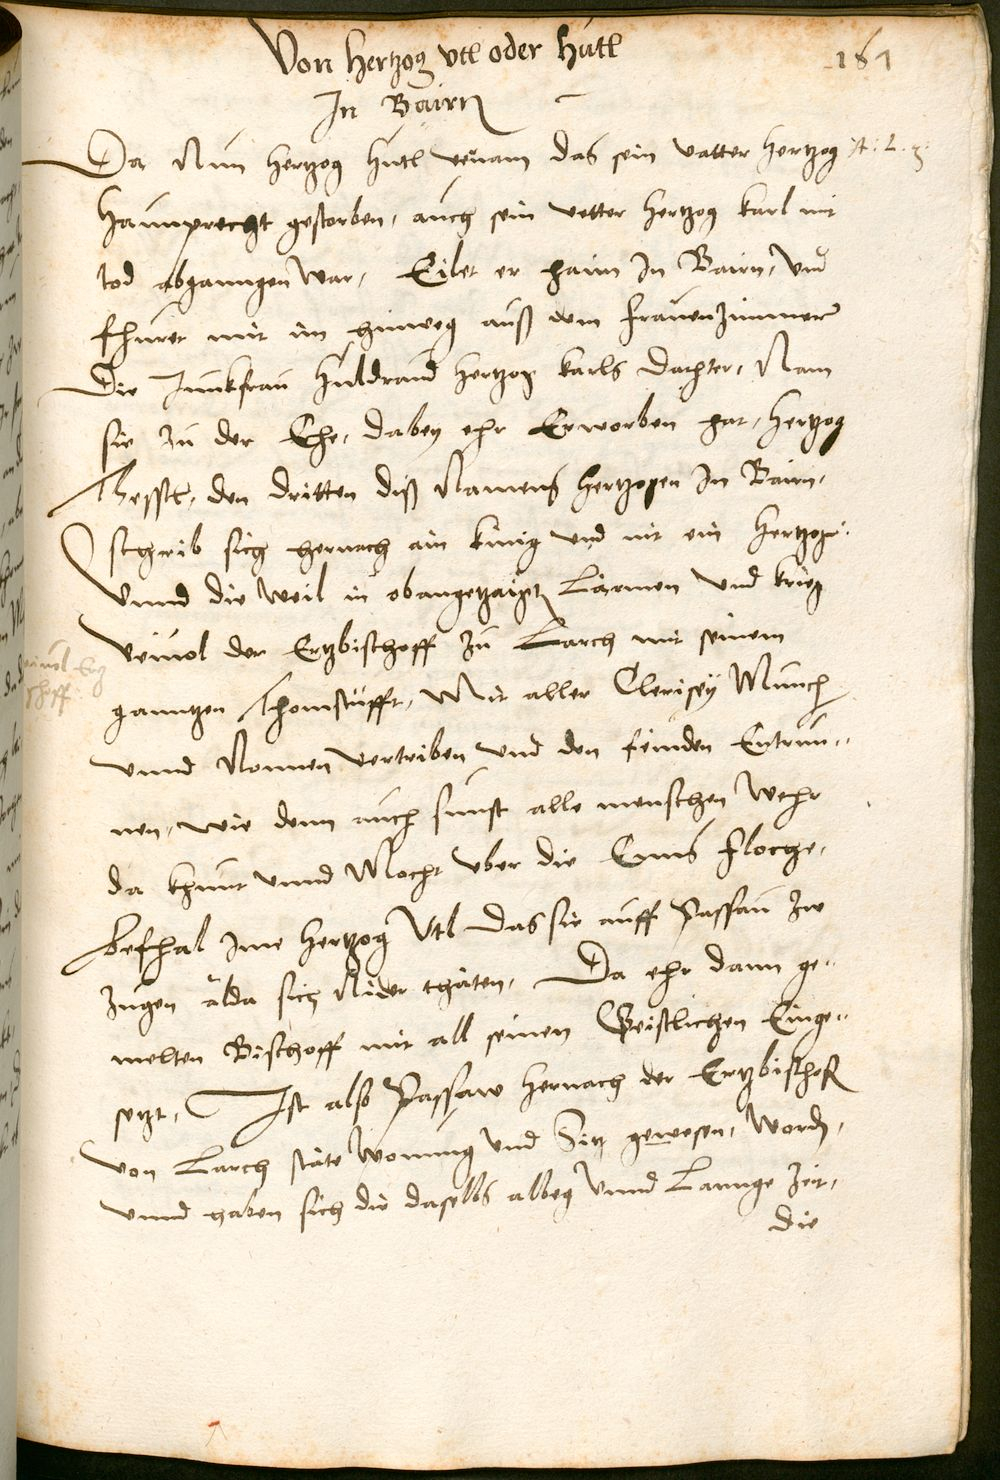 Von Hertzog Vtl oder Hutl
161
In Bairn
Da Nun Hertzog Hutl vernam das sein vatter Hertzog
Haunprecht gestorben, auch sein vetter Hertzog Karl mit
tod abganngen war, Eilet er haim In Bairn, Vnd
fhuret mit im hinweg auß dem frauenzimmer
Die Junkfrau Huldraud Hertzog Karls dochter, Nam
sie zu der Ehe, dabey ehr Erworben hat, Hertzog
Thessl, den dritten diß Namens Hertzogen In Bairn,
schrib sich hernach ain Kunig vnd nit ein Hertzog.
Vnnd die weil in obangetzaigten Lärmen vnd krieg
Viuol der Ertzbischoff zu Larch mit seinem
Viuol Ertz
schoff
ganntzen Thomstüfft, Mit aller Clerisey Munch
vnnd Nonnen vertriben vnd den feinden Entrun-
nen, wie denn auch sunst alle menschen wehr
da khunt vnnd Mocht vber die Enns flochge,
Befhal Ime Hertzog Vtl das sie auff Passau zw
zugen alda sich Nider thäten, Da ehr dann ge-
melten Bischoff mit all seinen Geistlichen Einge-
setzt, Ist also Passaw hernach der Ertzbischof
von Larch stäte wonung vnd Sitz gewesen, worden,
vnnd haben sich die daselbs albeg vnnd Lannge zeit,
die